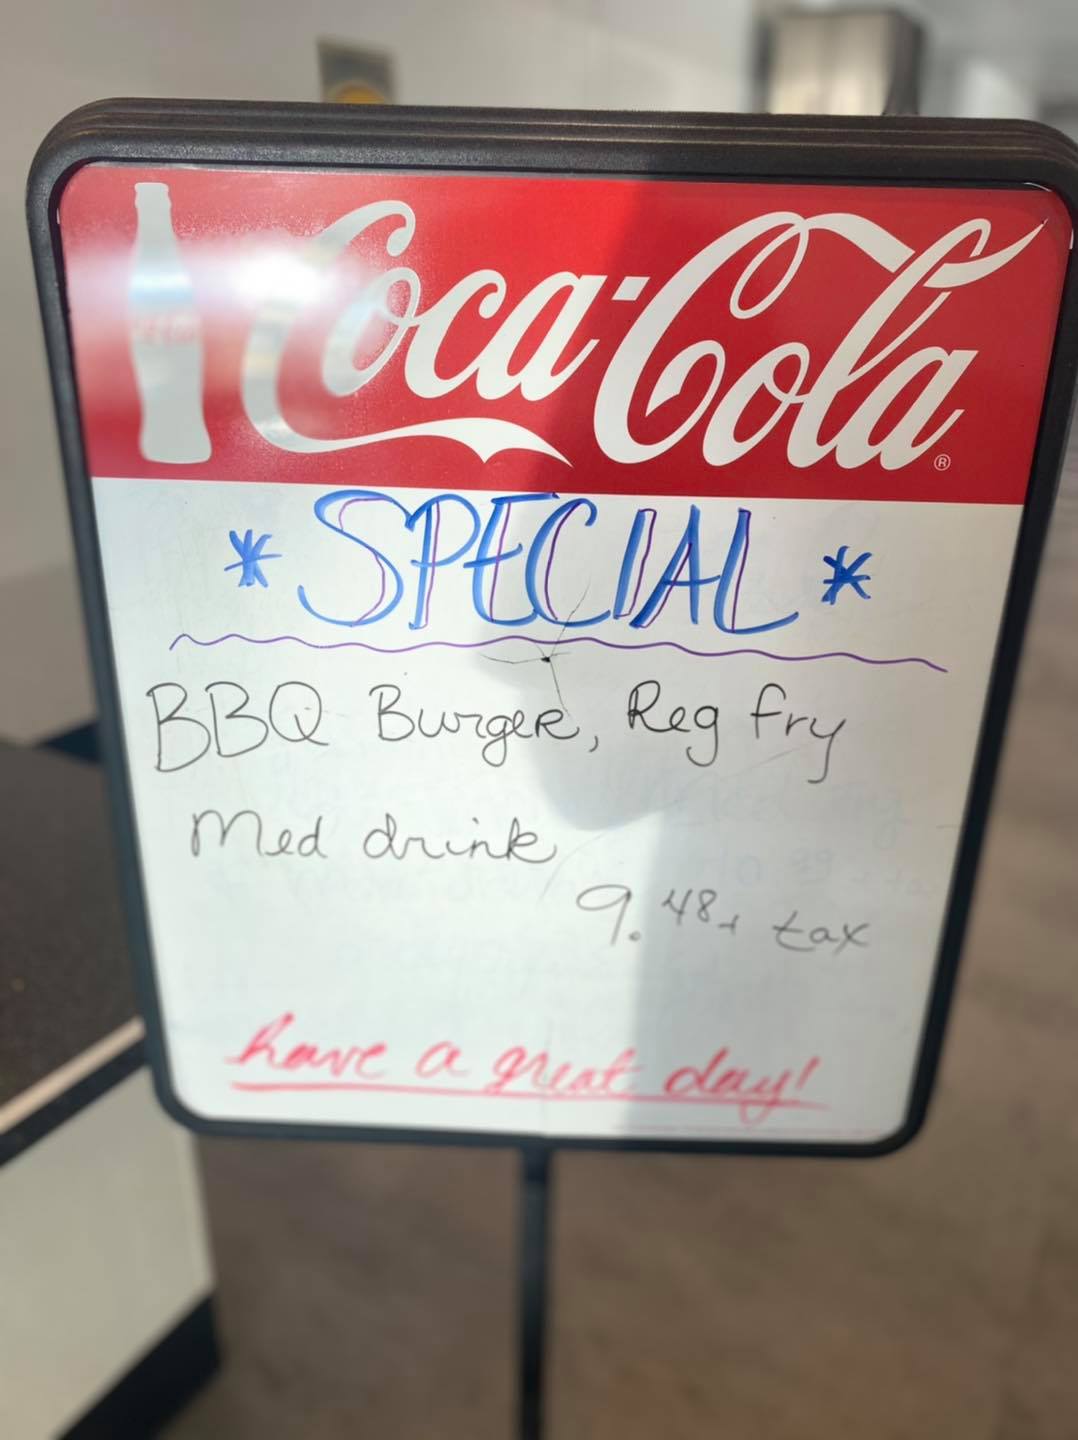 Coca-Cola®
* SPECIAL *
BBQ Burger, Reg fry
Med drink
9.48+ tax
have a great day!